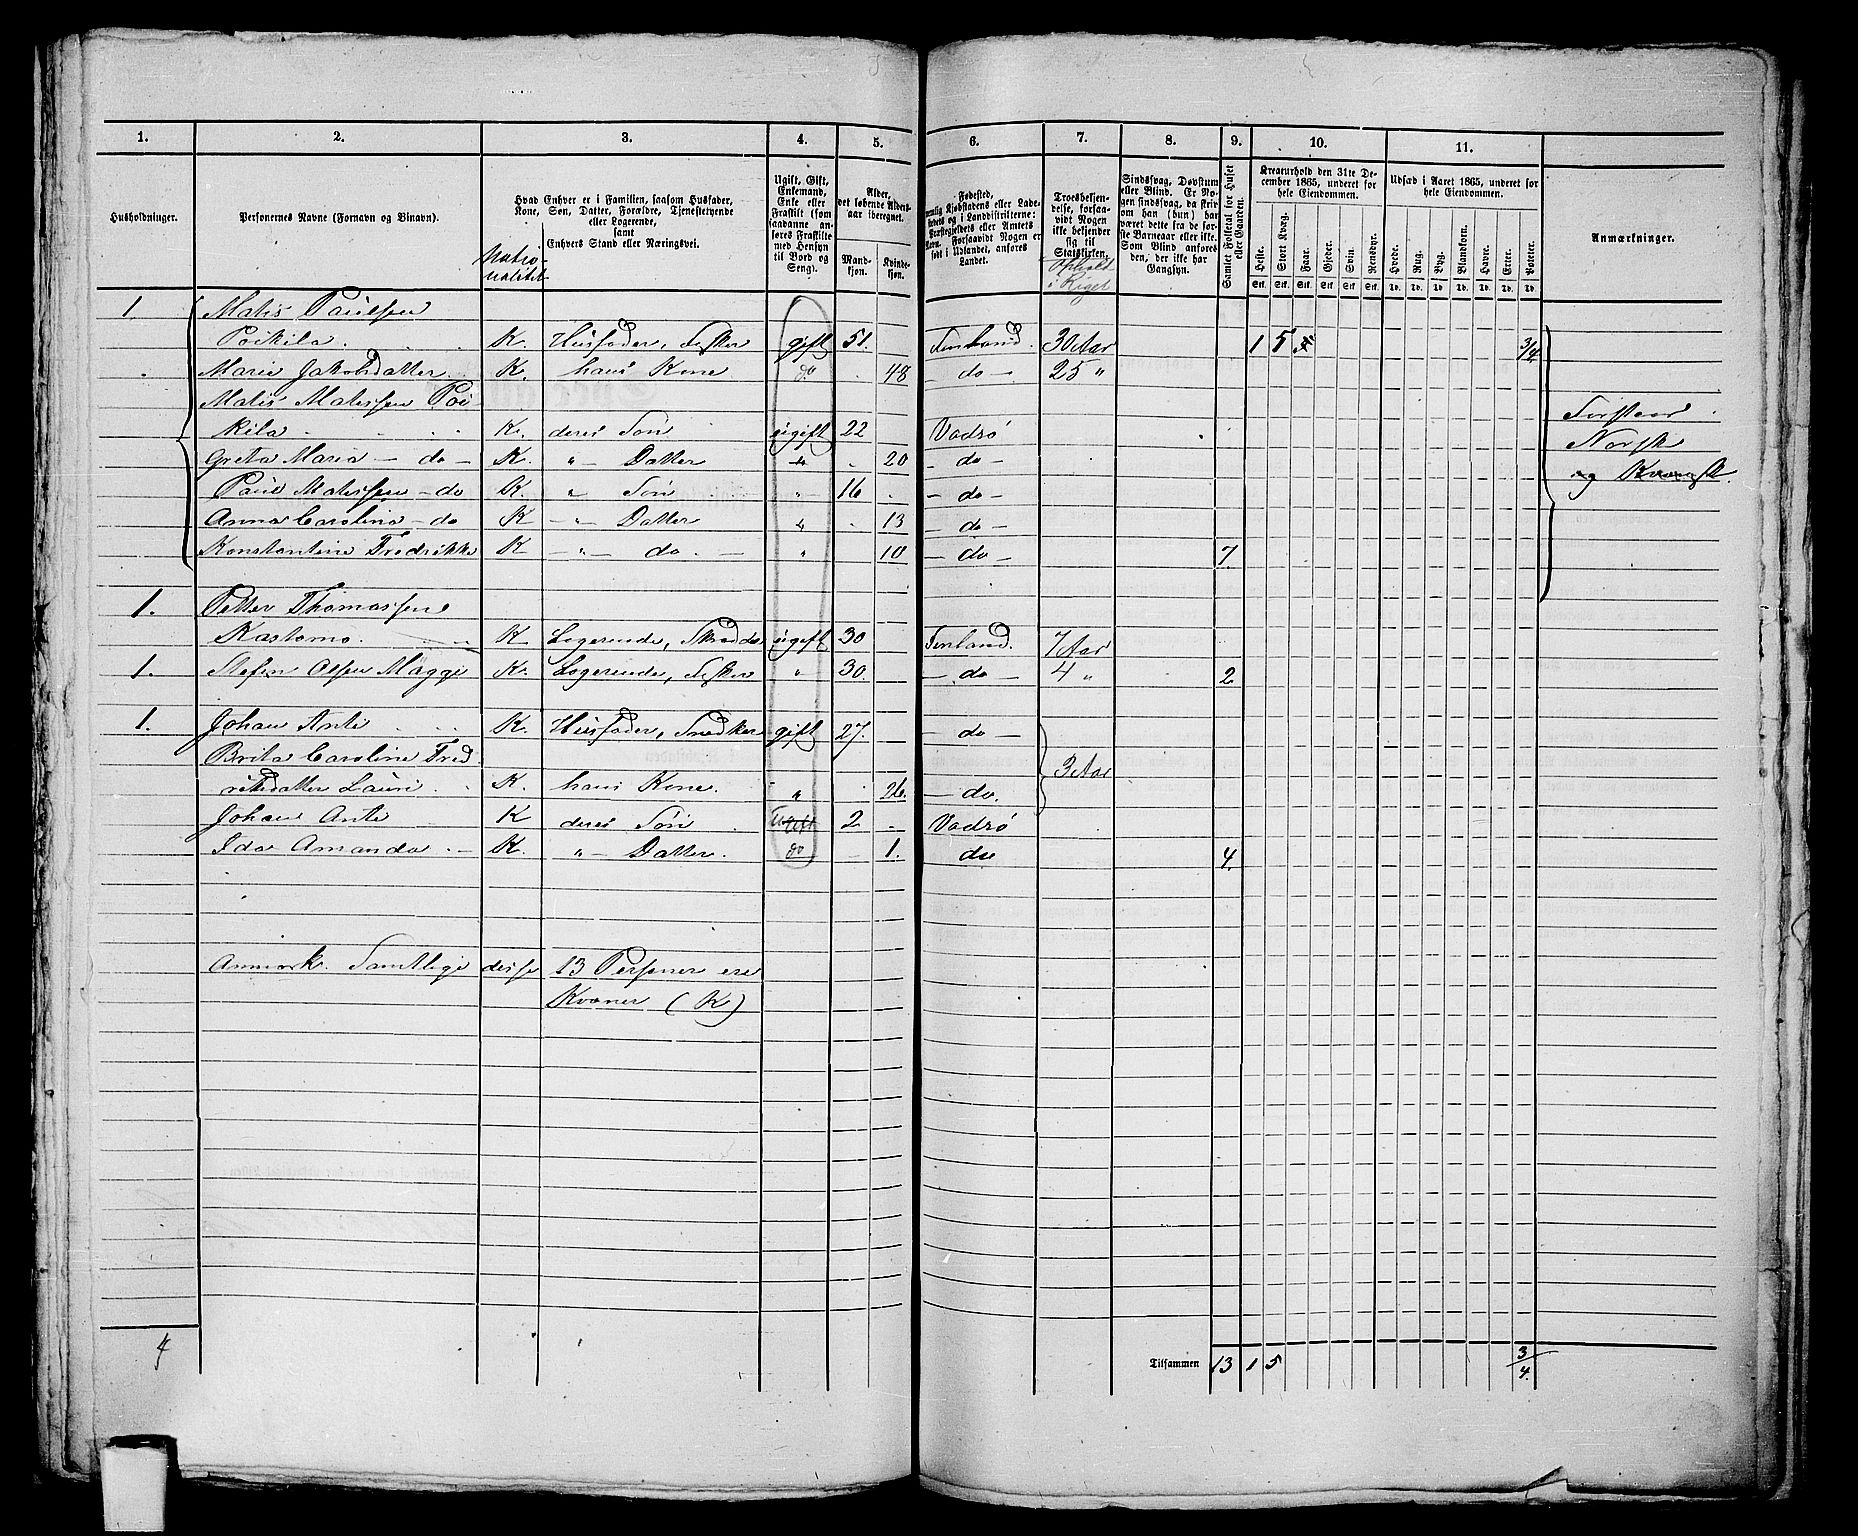 1. 2. 3. 4. 5. 6. 7. 8. 9. 10. 11.
Husholdninger.
Personernes Navne (Fornavn og Binavn).
Natio-
nalitet
Hvad Enhver er i Familien, saasom Husfader,
Kone, Søn, Datter, Forældre, Tjenestetyende
eller Logerende,
samt
Enhvers Stand eller Næringsvei.
Ugift, Gift,
Enkemand,
Enke eller
Fraskilt (som
saadanne an-
føres Fraskilte
med Hensyn
til Bord og
Seng).
Alder,
det løbende Alders-
aar iberegnet.
Mand-
kjøn.
Kvinde-
kjøn.
Fødested,
nemlig Kjøbstadens eller Lade-
stedets og i Landdistrikterne:
Præstegjeldets eller Amtets
Navn. Forsaavidt Nogen er
født i Udlandet, anføres
Landet.
Troesbekjen-
delse, forsaa-
vidt Nogen
ikke bekjender
sig til
Statskirken.
Ophold
i Riget
Sindssvag, Døvstum
eller Blind. Er No-
gen sindssvag, da skriv
om han (hun) har
været dette fra de før-
ste Barneaar eller ikke.
Som Blind anføres
den, der ikke har
Gangsyn.
Samlet Folketal for Huset
eller Gaarden.
Kreaturhold den 31te De-
cember 1865, underet for
hele Eiendommen.
Heste. Stort Kvæg. Faar. Gjeder. Svin. Rensdyr.
Stk. Stk. Stk. Stk. Stk. Stk.
Udsæd i Aaret 1865, underet for
hele Eiendommen.
Hvede. Rug. Byg. Blandkorn. Havre. Erter. Poteter.
Td. Td. Td. Td. Td. Td. Td.
Anmærkninger.
1 Matis Paulsen
Poikila K. Husfader, Fisker gift 51. Finland. 30 Aar 1 5 3/4
Marie Jakobsdatter K. hans Kone do 48 — do — 25 "
Matis Matissen Poi
kila K. deres Søn ugift 22 Vadsø
Greta Maria — do — K. " — Datter " 20 — do —
Paul Matissen — do K. " Søn " 16 — do —
Anna Carolina — do K — " — Datter " 13 — do —
Konstantine Fredrikke K — " — do — " 10 — do — 7
Forstaar
Norsk
og Kvænsk.
1. Petter Thomassen
Kastomo. K Logerende, Skrædder ugift 30 Finland. 7 Aar
1. Stefen Olsen Maggi K. Logerende, Fisker " 30. — do — 4 " 2
1. Johan Anti K. Husfader, Snedker gift 27. — do —
Brita Caroline Fred
riksdatter Lauri K. hans Kone. " 26. — do. 3 Aar
Johan Anti K deres Søn Ugift 2 Vadsø
Ida Amanda K. " — Datter. do 1. do 4.
Anmærk. Samtlige disse 13 Personer ere
Kvæner (K)
4
Tilsammen 13 1 5 3/4.